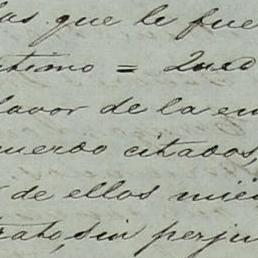 las que le fue
timo = Qued
favor de la en
cuerdo citados,
de ellos mien
trato, sin perju